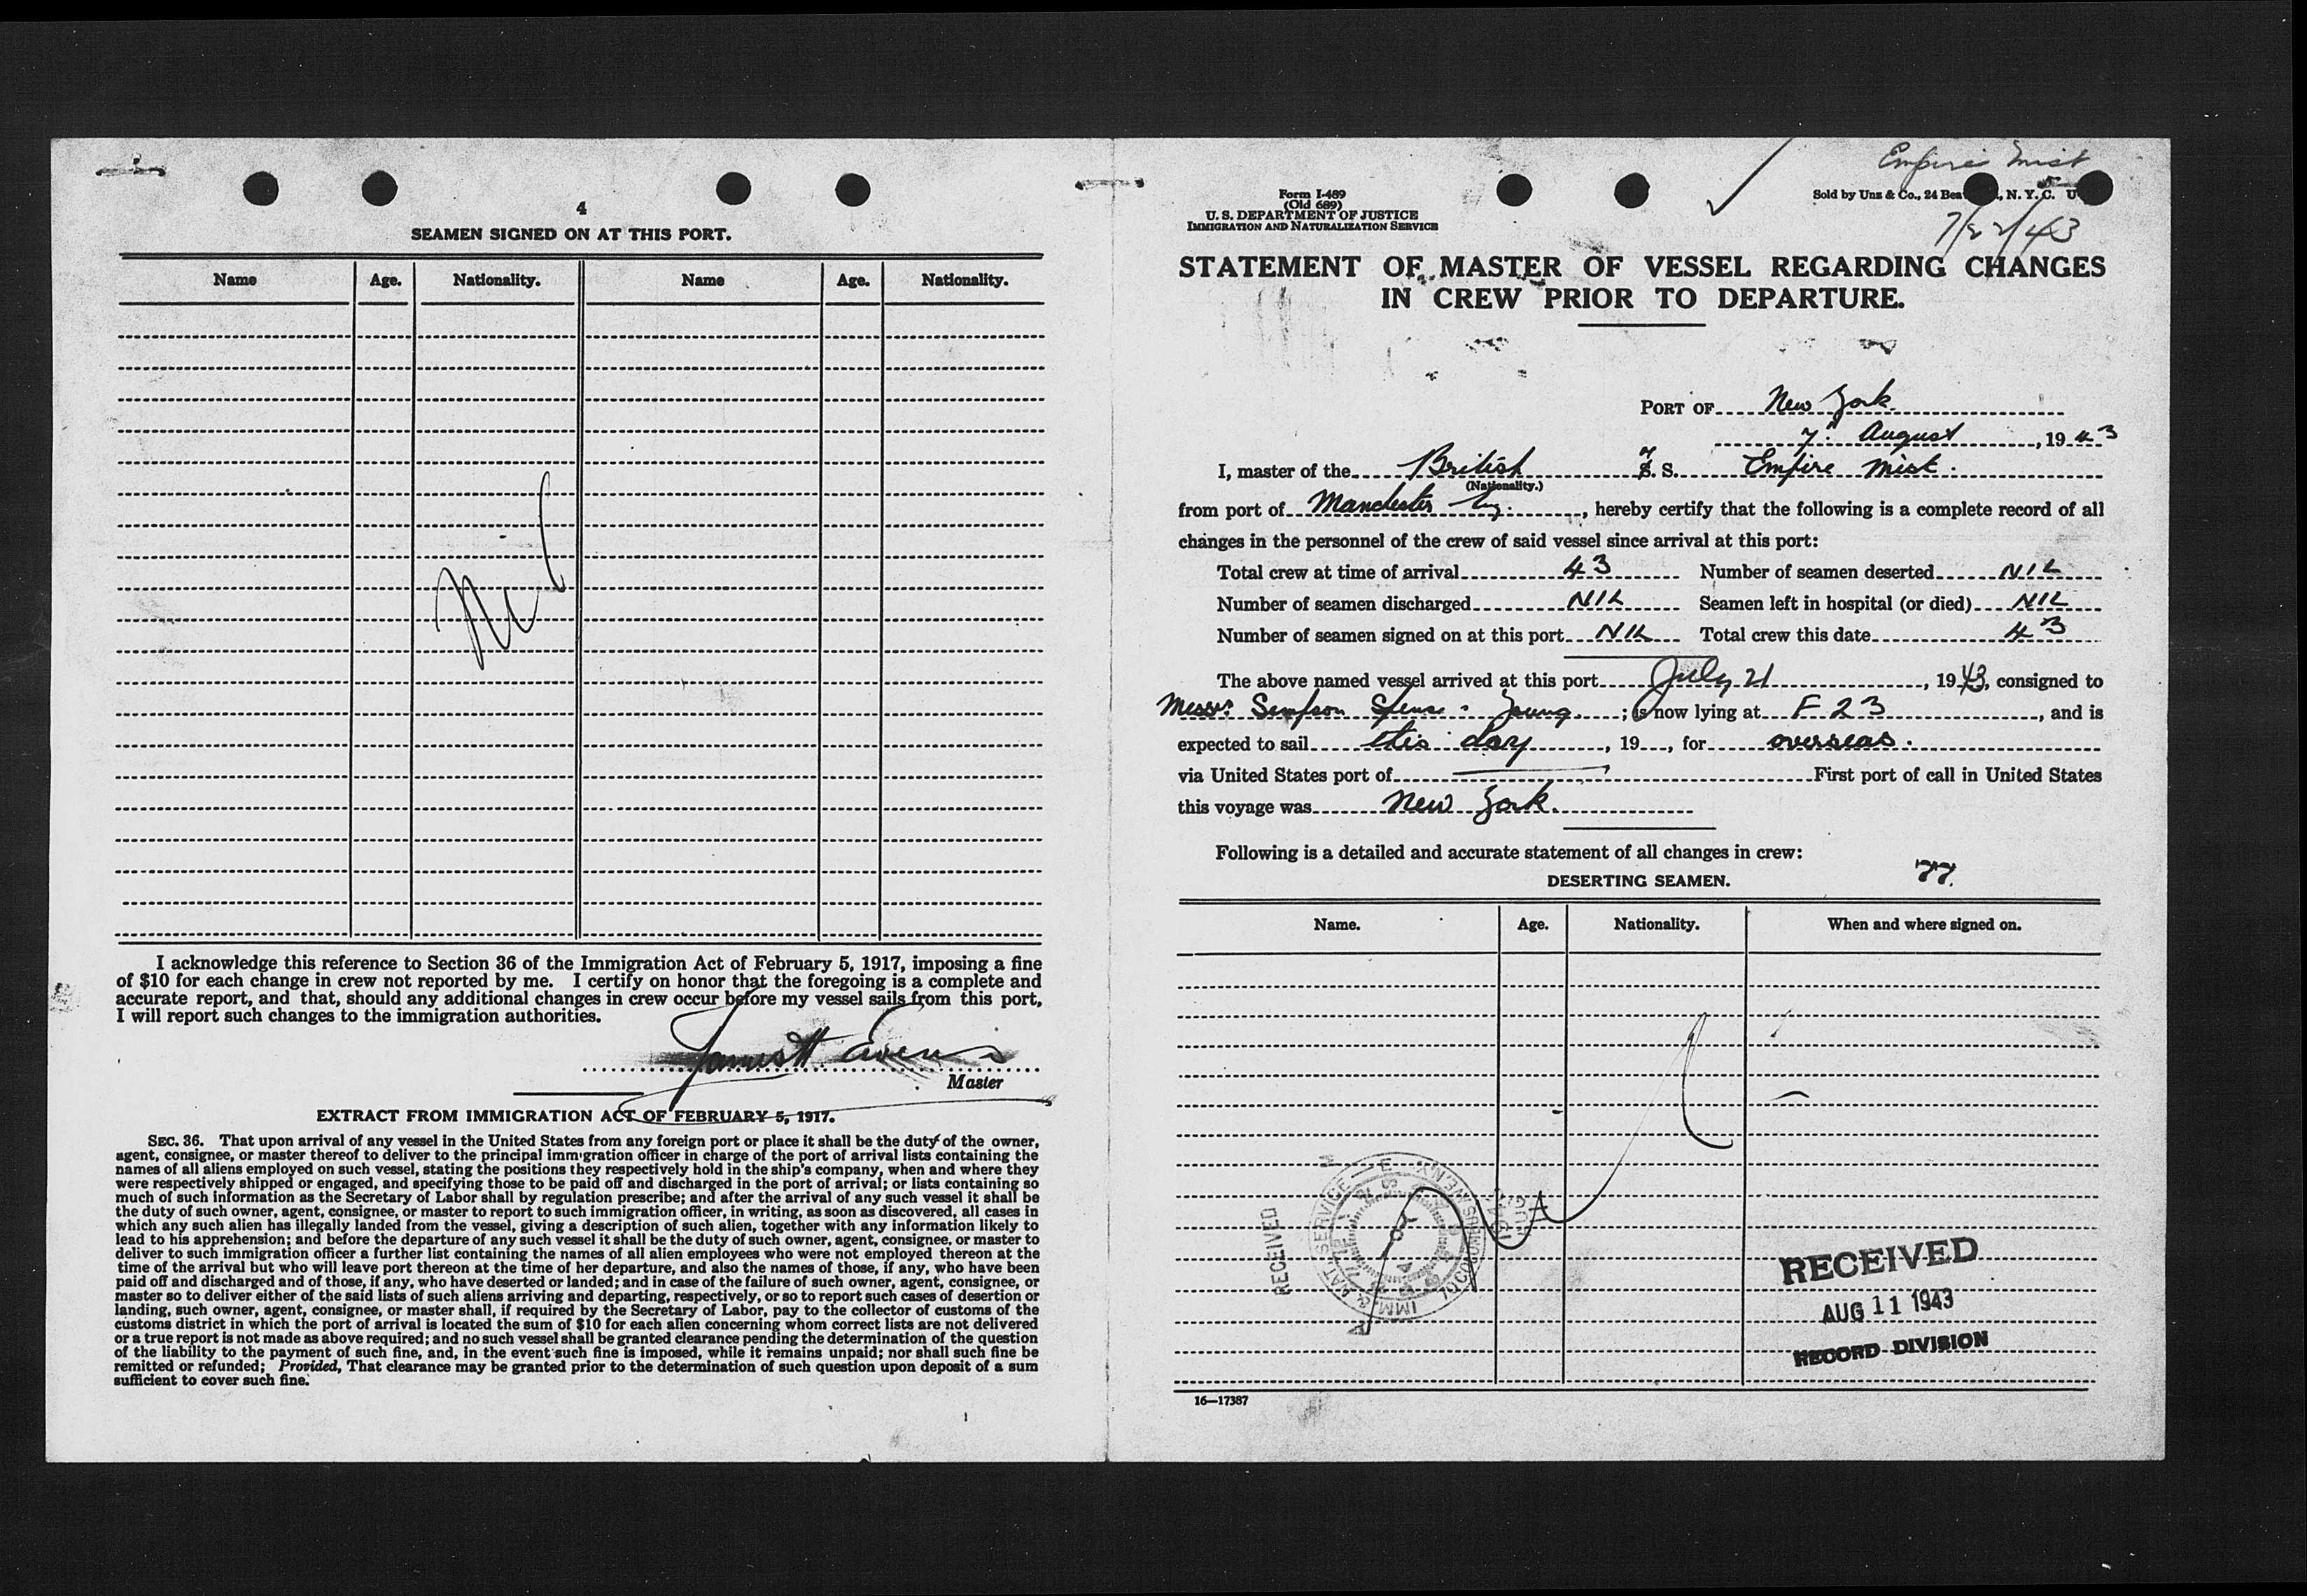 4
SEAMEN SIGNED ON AT THIS PORT.
Name Age. Nationality. Name Age. Nationality.
Nil
I acknowledge this reference to Section 36 of the Immigration Act of February 5, 1917, imposing a fine
of $10 for each change in crew not reported by me. I certify on honor that the foregoing is a complete and
accurate report, and that, should any additional changes in crew occur before my vessel sails from this port,
I will report such changes to the immigration authorities.
Master
EXTRACT FROM IMMIGRATION ACT OF FEBRUARY 5, 1917.
SEC. 36. That upon arrival of any vessel in the United States from any foreign port or place it shall be the duty of the owner,
agent, consignee, or master thereof to deliver to the principal immigration officer in charge of the port of arrival lists containing the
names of all aliens employed on such vessel, stating the positions they respectively hold in the ship's company, when and where they
were respectively shipped or engaged, and specifying those to be paid off and discharged in the port of arrival; or lists containing so
much of such information as the Secretary of Labor shall by regulation prescribe; and after the arrival of any such vessel it shall be
the duty of such owner, agent, consignee, or master to report to such immigration officer, in writing, as soon as discovered, all cases in
which any such alien has illegally landed from the vessel, giving a description of such alien, together with any information likely to
lead to his apprehension; and before the departure of any such vessel it shall be the duty of such owner, agent, consignee, or master to
deliver to such immigration officer a further list containing the names of all alien employees who were not employed thereon at the
time of the arrival but who will leave port thereon at the time of her departure, and also the names of those, if any, who have been
paid off and discharged and of those, if any, who have deserted or landed; and in case of the failure of such owner, agent, consignee, or
master so to deliver either of the said lists of such aliens arriving and departing, respectively, or so to report such cases of desertion or
landing, such owner, agent, consignee, or master shall, if required by the Secretary of Labor, pay to the collector of customs of the
customs district in which the port of arrival is located the sum of $10 for each alien concerning whom correct lists are not delivered
or a true report is not made as above required; and no such vessel shall be granted clearance pending the determination of the question
of the liability to the payment of such fine, and, in the event such fine is imposed, while it remains unpaid; nor shall such fine be
remitted or refunded; Provided, That clearance may be granted prior to the determination of such question upon deposit of a sum
sufficient to cover such fine.
Empire Mist
Form I-489
(Old 689)
U. S. DEPARTMENT OF JUSTICE
IMMIGRATION AND NATURALIZATION SERVICE
Sold by Unz & Co., 24 Bea N. Y. C.
7/22/43
STATEMENT OF MASTER OF VESSEL REGARDING CHANGES
IN CREW PRIOR TO DEPARTURE.
PORT OF New York
7. August, 1943
I, master of the British S. S. Empire Mist.
(Nationality.)
from port of Manchester Eng., hereby certify that the following is a complete record of all
changes in the personnel of the crew of said vessel since arrival at this port:
Total crew at time of arrival 43 Number of seamen deserted NIL
Number of seamen discharged NIL Seamen left in hospital (or died) NIL
Number of seamen signed on at this port NIL Total crew this date 43
The above named vessel arrived at this port July 21, 1943, consigned to
Messrs Simpson Spence & Young; is now lying at F 23, and is
expected to sail this day, 19, for overseas.
via United States port of First port of call in United States
this voyage was New York.
Following is a detailed and accurate statement of all changes in crew:
DESERTING SEAMEN.
77.
Name. Age. Nationality. When and where signed on.
Nil
RECEIVED
RECEIVED
AUG 11 1943
RECORD DIVISION
16—17387